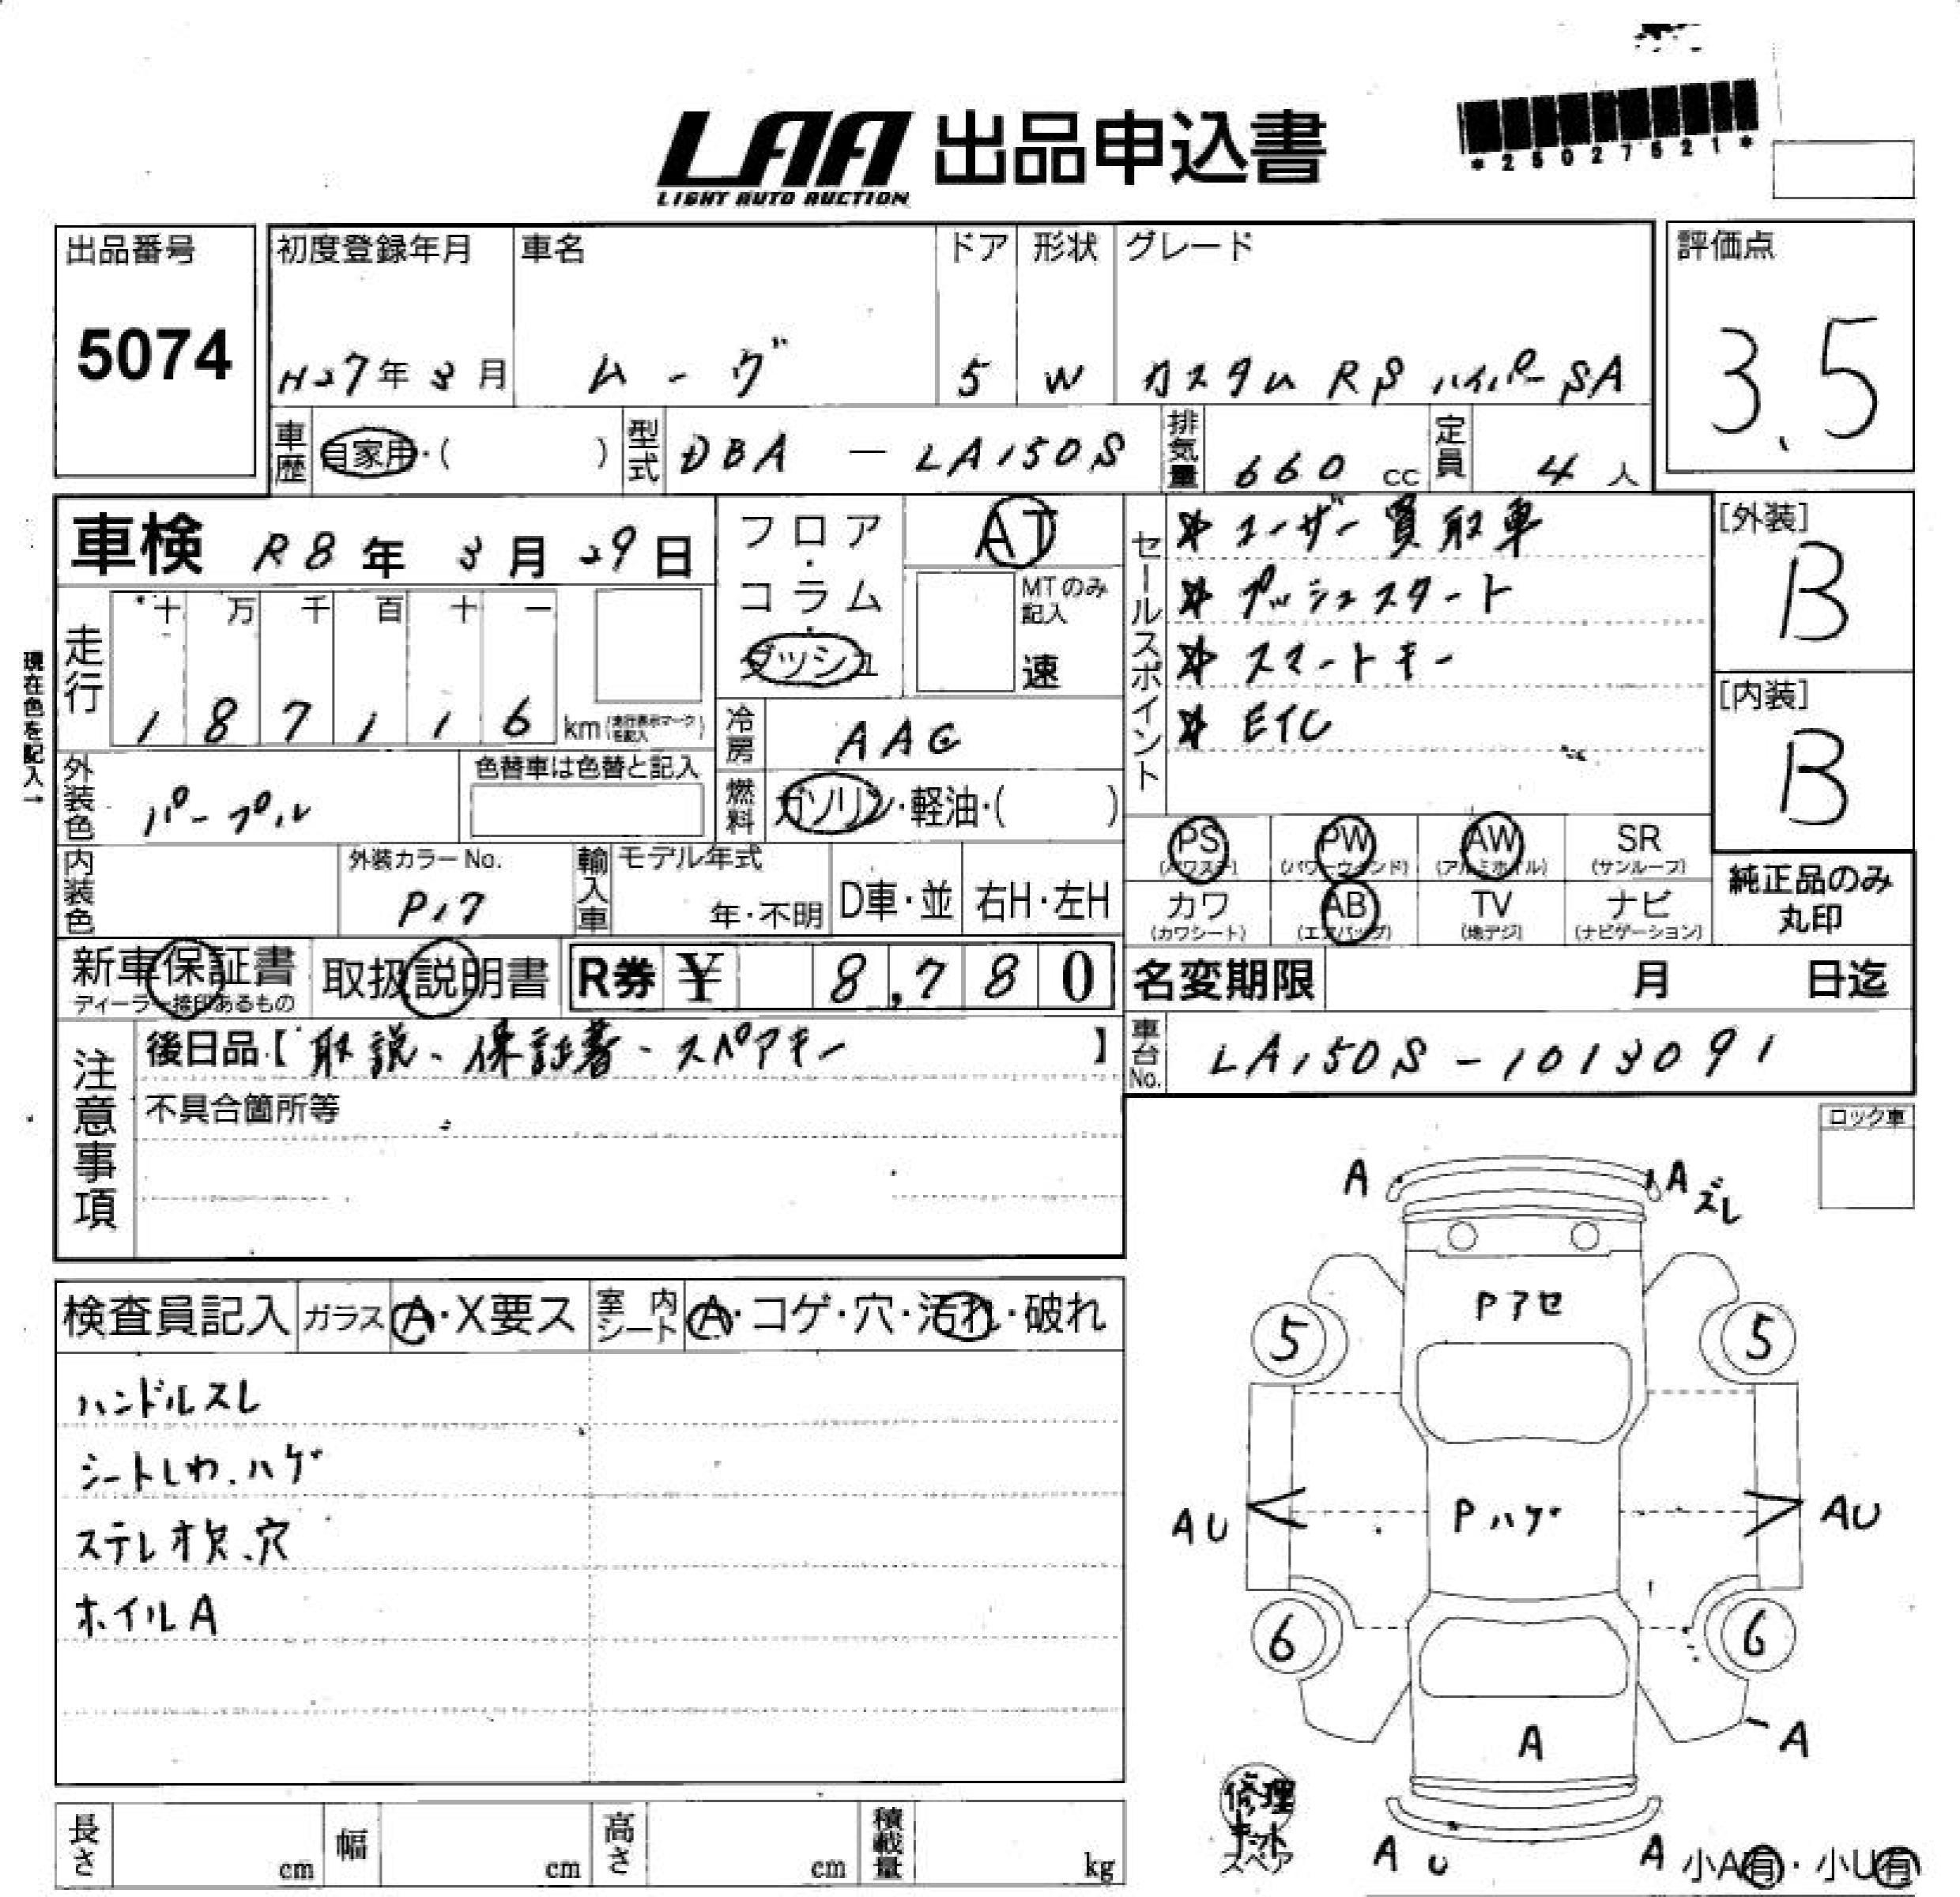 LAA 出品申込書
LIGHT AUTO AUCTION
*25027521*
出品番号
5074
初度登録年月
H27年3月
車名
ムーヴ
ドア
5
形状
W
グレード
カスタム RS ハイパーSA
評価点
3.5
車歴
自家用・( )
型式
DBA - LA150S
排気量
660 cc
定員
4 人
車検 R8年3月29日
フロア・コラム・ダッシュ
AT
MTのみ記入
速
セールスポイント
☆ ユーザー買取車
☆ プッシュスタート
☆ スマートキー
☆ ETC
[外装]
B
[内装]
B
現在色を記入→
走行
十 万 千 百 十 一
1 8 7 1 1 6 km (走行表示マークを記入)
冷房
AAC
燃料
ガソリン・軽油・( )
外装色
パープル
色替車は色替と記入
内装色
外装カラーNo.
P17
輸入車
モデル年式
年・不明
D車・並
右H・左H
PS
(パワステ)
PW
(パワーウィンド)
AW
(アルミホイル)
SR
(サンルーフ)
カワ
(カワシート)
AB
(エアバッグ)
TV
(地デジ)
ナビ
(ナビゲーション)
純正品のみ
丸印
新車保証書
ディーラー捺印あるもの
取扱説明書
R券 ¥ 8,780
名変期限 月 日迄
注意事項
後日品【取説、保証書、スペアキー】
不具合箇所等
車台No.
LA150S-1013091
ロック車
検査員記入
ガラス
A・X要ス
室内シート
A・コゲ・穴・汚れ・破れ
ハンドルスレ
シートしわ、ハゲ
ステレオ欠、穴
ホイルA
A
A
ズレ
Pアセ
5
5
AU
Pハゲ
AU
6
6
A
A
修理キット
スペア
A U
A
小A有・小U有
長さ cm
幅 cm
高さ cm
積載量 kg